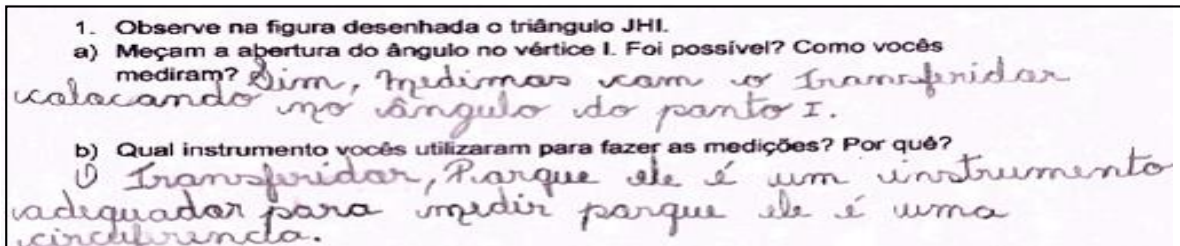 1. Observe na figura desenhada o triângulo JHI.
a) Meçam a abertura do ângulo no vértice I. Foi possível? Como vocês
mediram? Sim, medimos com o Transferidor
colocando no ângulo do ponto I.
b) Qual instrumento vocês utilizaram para fazer as medições? Por quê?
O Transferidor, Porque ele é um instrumento
adequador para medir porque ele é uma
circuferencia.